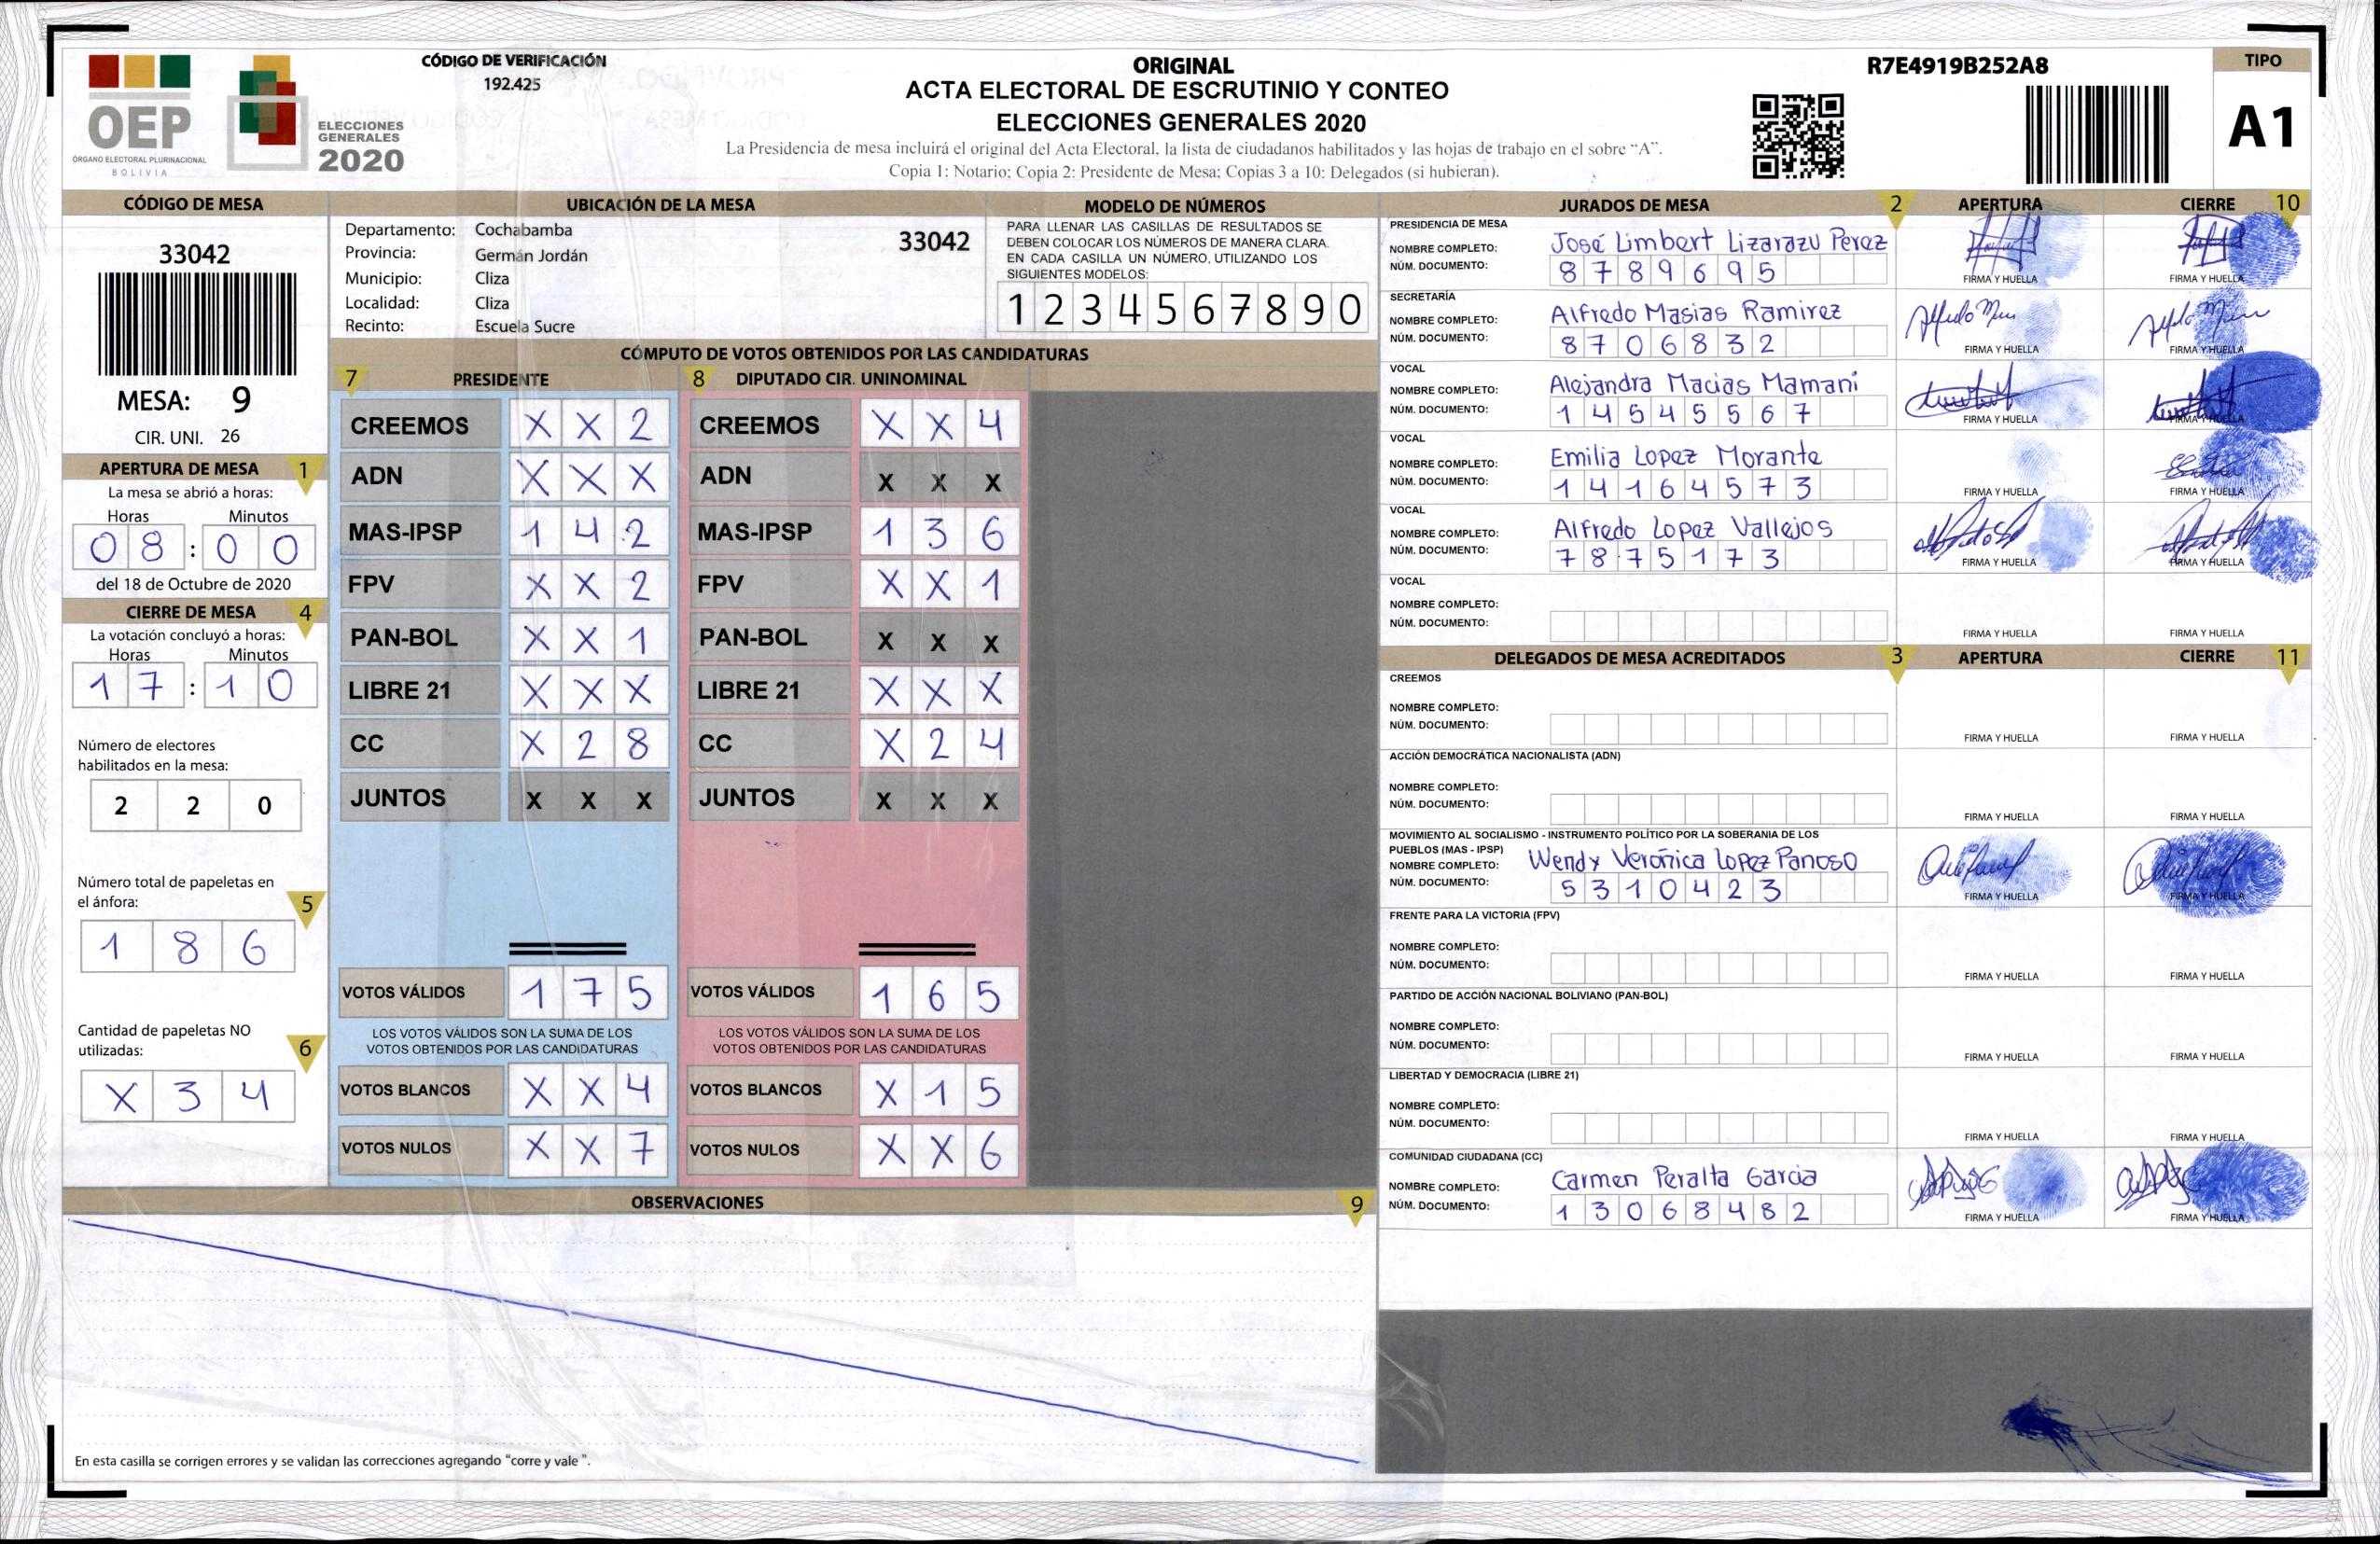 CÓDIGO DE VERIFICACIÓN
192.425
OEP
ÓRGANO ELECTORAL PLURINACIONAL
BOLIVIA
ELECCIONES
GENERALES
2020
ORIGINAL
ACTA ELECTORAL DE ESCRUTINIO Y CONTEO
ELECCIONES GENERALES 2020
La Presidencia de mesa incluirá el original del Acta Electoral, la lista de ciudadanos habilitados y las hojas de trabajo en el sobre “A”.
Copia 1: Notario; Copia 2: Presidente de Mesa; Copias 3 a 10: Delegados (si hubieran).
R7E4919B252A8
TIPO
A1
CÓDIGO DE MESA
33042
MESA: 9
CIR. UNI. 26
APERTURA DE MESA 1
La mesa se abrió a horas:
Horas Minutos
0 8 : 0 0
del 18 de Octubre de 2020
CIERRE DE MESA 4
La votación concluyó a horas:
Horas Minutos
1 7 : 1 0
Número de electores
habilitados en la mesa:
2 2 0
Número total de papeletas en
el ánfora: 5
1 8 6
Cantidad de papeletas NO
utilizadas: 6
X 3 4
UBICACIÓN DE LA MESA
Departamento: Cochabamba
Provincia: Germán Jordán
Municipio: Cliza
Localidad: Cliza
Recinto: Escuela Sucre
33042
MODELO DE NÚMEROS
PARA LLENAR LAS CASILLAS DE RESULTADOS SE
DEBEN COLOCAR LOS NÚMEROS DE MANERA CLARA.
EN CADA CASILLA UN NÚMERO, UTILIZANDO LOS
SIGUIENTES MODELOS:
1 2 3 4 5 6 7 8 9 0
CÓMPUTO DE VOTOS OBTENIDOS POR LAS CANDIDATURAS
7 PRESIDENTE
CREEMOS X X 2
ADN X X X
MAS-IPSP 1 4 2
FPV X X 2
PAN-BOL X X 1
LIBRE 21 X X X
CC X 2 8
JUNTOS X X X
VOTOS VÁLIDOS 1 7 5
LOS VOTOS VÁLIDOS SON LA SUMA DE LOS
VOTOS OBTENIDOS POR LAS CANDIDATURAS
VOTOS BLANCOS X X 4
VOTOS NULOS X X 7
8 DIPUTADO CIR. UNINOMINAL
CREEMOS X X 4
ADN X X X
MAS-IPSP 1 3 6
FPV X X 1
PAN-BOL X X X
LIBRE 21 X X X
CC X 2 4
JUNTOS X X X
VOTOS VÁLIDOS 1 6 5
LOS VOTOS VÁLIDOS SON LA SUMA DE LOS
VOTOS OBTENIDOS POR LAS CANDIDATURAS
VOTOS BLANCOS X 1 5
VOTOS NULOS X X 6
OBSERVACIONES 9
En esta casilla se corrigen errores y se validan las correcciones agregando “corre y vale”.
JURADOS DE MESA 2 APERTURA CIERRE 10
PRESIDENCIA DE MESA
NOMBRE COMPLETO: José Limbert Lizarazu Perez
NÚM. DOCUMENTO: 8 7 8 9 6 9 5
FIRMA Y HUELLA FIRMA Y HUELLA
SECRETARÍA
NOMBRE COMPLETO: Alfredo Masias Ramirez
NÚM. DOCUMENTO: 8 7 0 6 8 3 2
FIRMA Y HUELLA FIRMA Y HUELLA
VOCAL
NOMBRE COMPLETO: Alejandra Macias Mamani
NÚM. DOCUMENTO: 1 4 5 4 5 5 6 7
FIRMA Y HUELLA FIRMA Y HUELLA
VOCAL
NOMBRE COMPLETO: Emilia Lopez Morante
NÚM. DOCUMENTO: 1 4 1 6 4 5 7 3
FIRMA Y HUELLA FIRMA Y HUELLA
VOCAL
NOMBRE COMPLETO: Alfredo Lopez Vallejos
NÚM. DOCUMENTO: 7 8 7 5 1 7 3
FIRMA Y HUELLA FIRMA Y HUELLA
VOCAL
NOMBRE COMPLETO:
NÚM. DOCUMENTO:
FIRMA Y HUELLA FIRMA Y HUELLA
DELEGADOS DE MESA ACREDITADOS 3 APERTURA CIERRE 11
CREEMOS
NOMBRE COMPLETO:
NÚM. DOCUMENTO:
FIRMA Y HUELLA FIRMA Y HUELLA
ACCIÓN DEMOCRÁTICA NACIONALISTA (ADN)
NOMBRE COMPLETO:
NÚM. DOCUMENTO:
FIRMA Y HUELLA FIRMA Y HUELLA
MOVIMIENTO AL SOCIALISMO - INSTRUMENTO POLÍTICO POR LA SOBERANIA DE LOS
PUEBLOS (MAS - IPSP)
NOMBRE COMPLETO: Wendy Verónica Lopez Panoso
NÚM. DOCUMENTO: 5 3 1 0 4 2 3
FIRMA Y HUELLA FIRMA Y HUELLA
FRENTE PARA LA VICTORIA (FPV)
NOMBRE COMPLETO:
NÚM. DOCUMENTO:
FIRMA Y HUELLA FIRMA Y HUELLA
PARTIDO DE ACCIÓN NACIONAL BOLIVIANO (PAN-BOL)
NOMBRE COMPLETO:
NÚM. DOCUMENTO:
FIRMA Y HUELLA FIRMA Y HUELLA
LIBERTAD Y DEMOCRACIA (LIBRE 21)
NOMBRE COMPLETO:
NÚM. DOCUMENTO:
FIRMA Y HUELLA FIRMA Y HUELLA
COMUNIDAD CIUDADANA (CC)
NOMBRE COMPLETO: Carmen Peralta Garcia
NÚM. DOCUMENTO: 1 3 0 6 8 4 8 2
FIRMA Y HUELLA FIRMA Y HUELLA